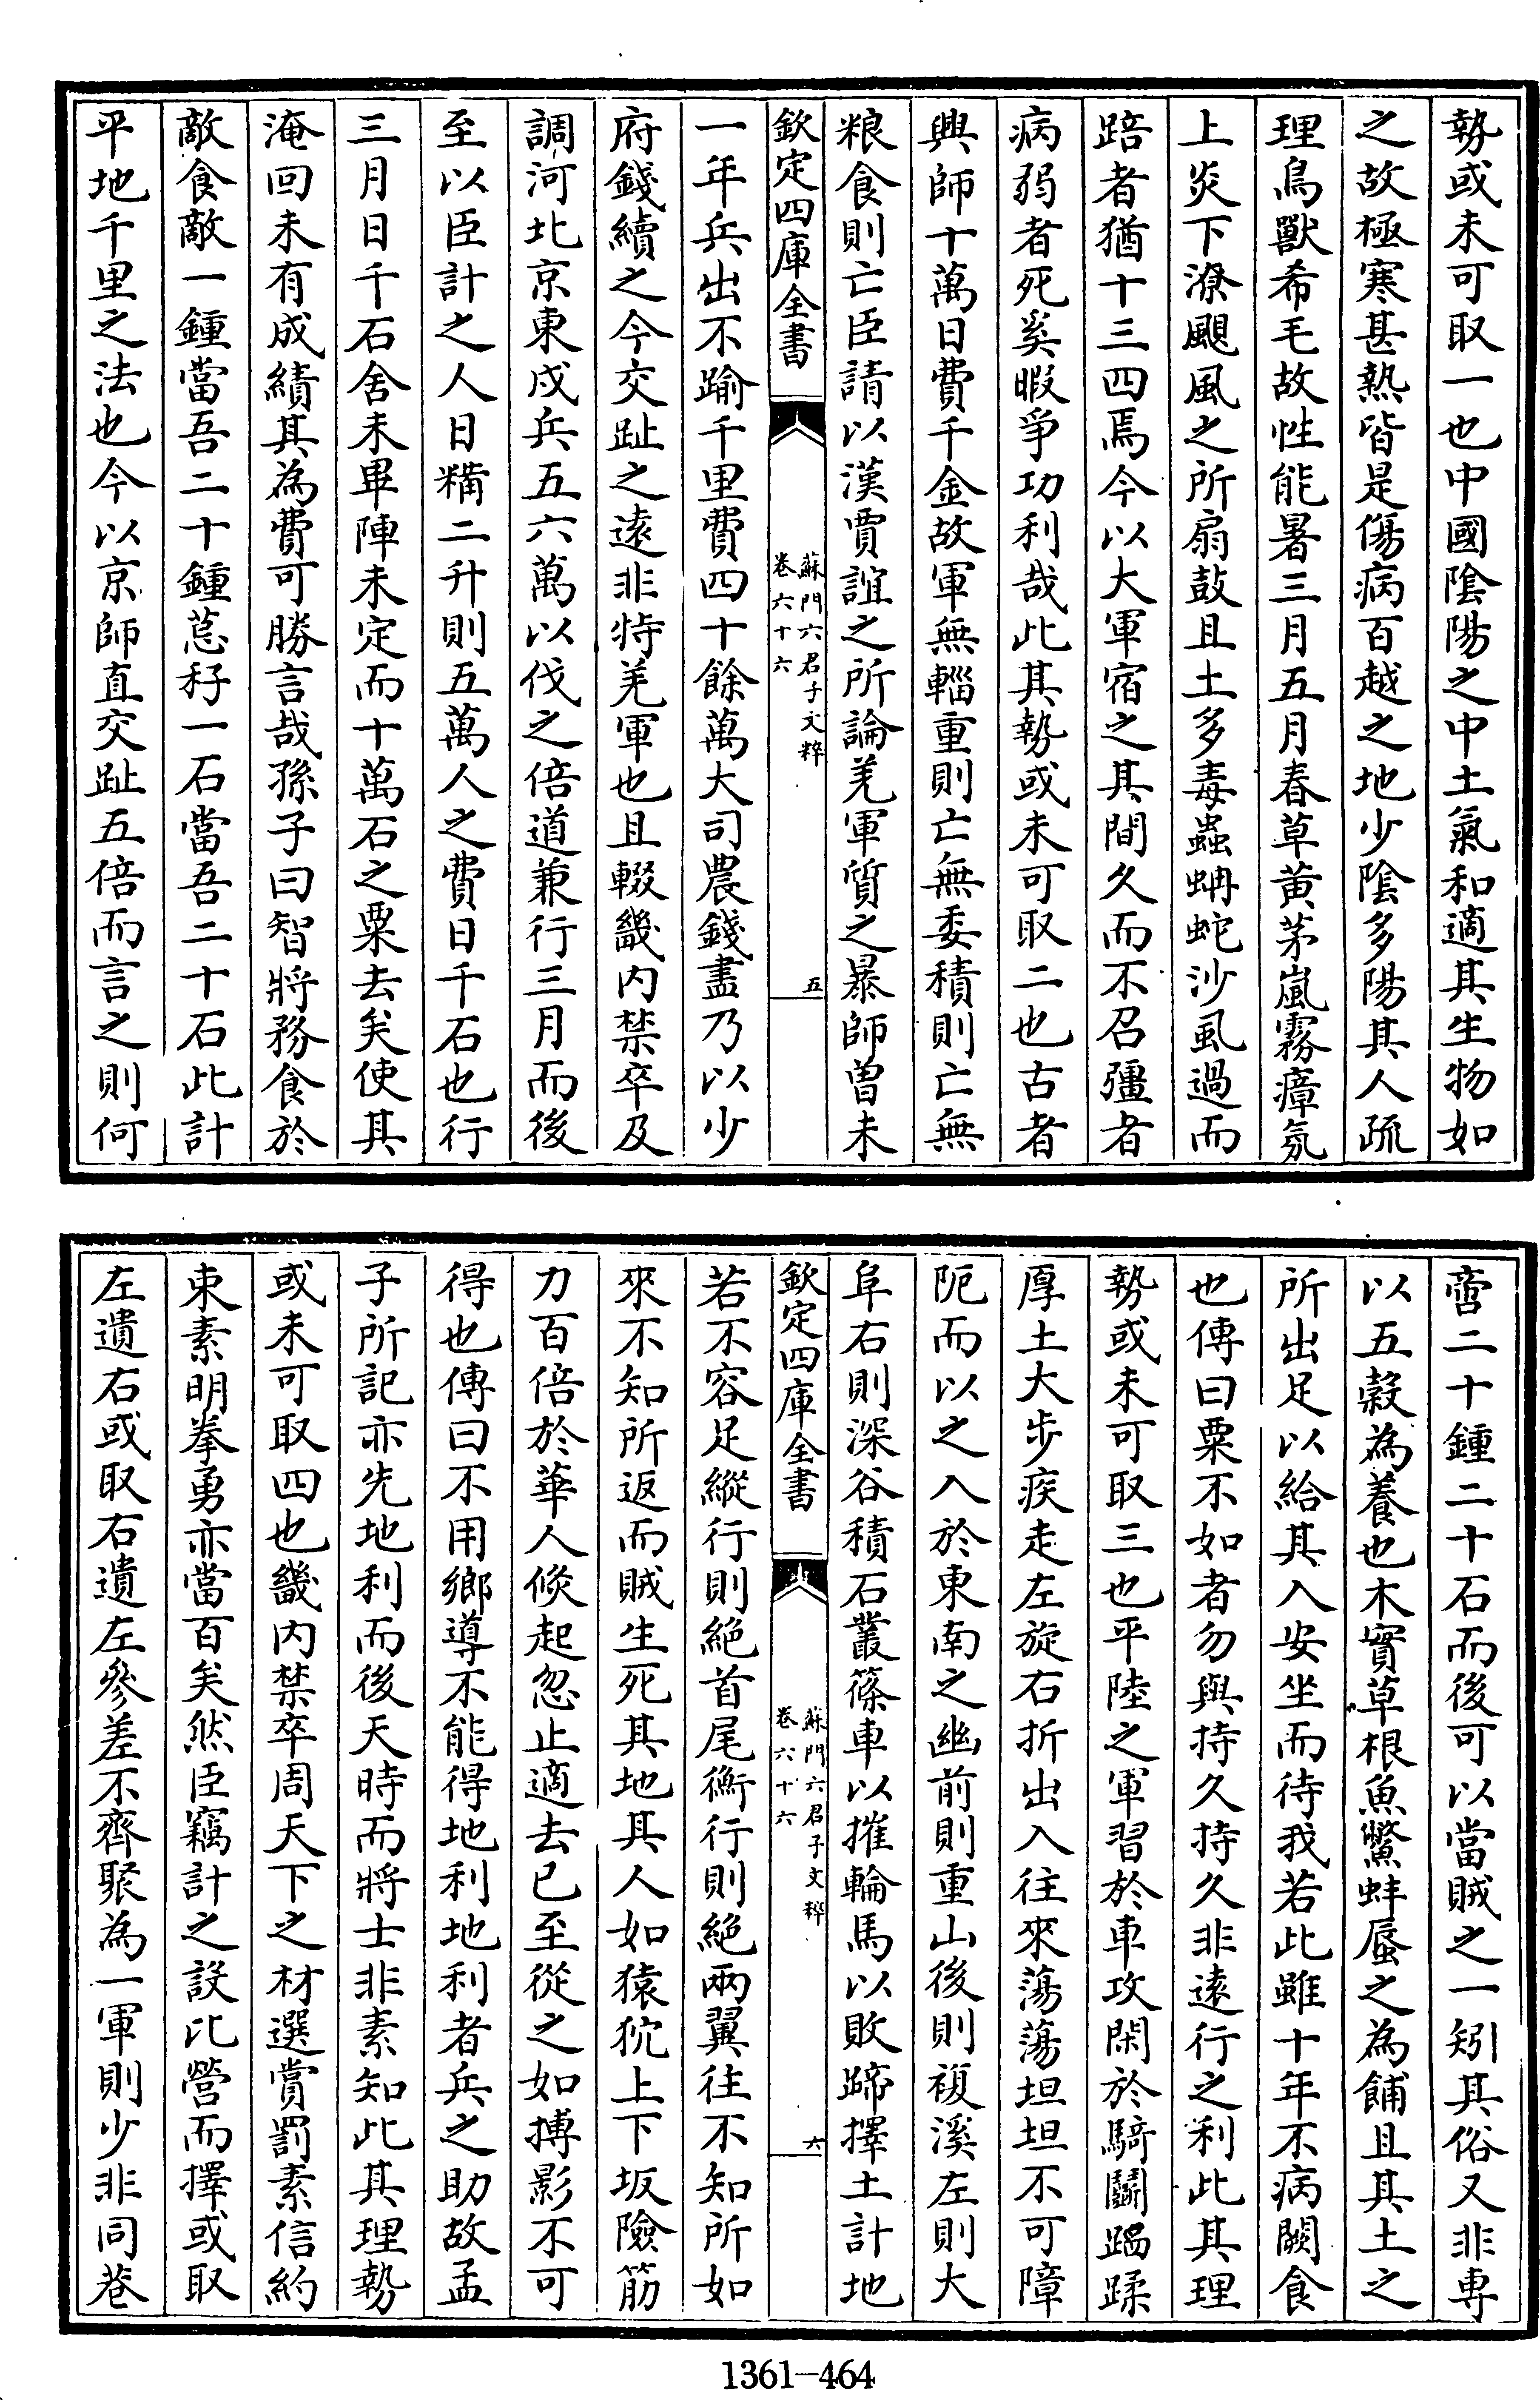 勢或未可取一也中國陰陽之中土氣和適其生物如
之故極寒甚熱皆是傷病百越之地少陰多陽其人疏
理鳥獸希毛故性能暑三月五月春草黄茅嵐霧瘴氛
上炎下潦颶風之所扇鼓且土多毒蟲蚺蛇沙虱過而
踣者猶十三四焉今以大軍宿之其間久而不召彊者
病弱者死奚暇爭功利哉此其勢或未可取二也古者
興師十萬日費千金故軍無輜重則亡無委積則亡無
粮食則亡臣請以漢賈誼之所論羌軍質之暴師曽未
欽定四庫全書
蘇門六君子文粹
卷六十六
五
一年兵出不踰千里費四十餘萬大司農錢盡乃以少
府錢續之今交趾之逺非特羌軍也且輟畿内禁卒及
調河北京東戍兵五六萬以伐之倍道兼行三月而後
至以臣計之人日糒二升則五萬人之費日千石也行
三月日千石舍未畢陣未定而十萬石之粟去矣使其
淹回未有成績其為費可勝言哉孫子曰智將務食於
敵食敵一鍾當吾二十鍾萁秄一石當吾二十石此計
平地千里之法也今以京師直交趾五倍而言之則何
啻二十鍾二十石而後可以當賊之一矧其俗又非專
以五穀為養也木實草根魚鱉蚌蜃之為餔且其土之
所出足以給其入安坐而待我若此雖十年不病闕食
也傳曰粟不如者勿與持久持久非逺行之利此其理
勢或未可取三也平陸之軍習於車攻閑於騎鬭蹋蹂
厚土大步疾走左旋右折出入往來蕩蕩坦坦不可障
阨而以之入於東南之幽前則重山後則複溪左則大
阜右則深谷積石叢篠車以摧輪馬以敗蹄擇土計地
欽定四庫全書
蘇門六君子文粹
卷六十六
六
若不容足縱行則絶首尾衡行則絶兩翼往不知所如
來不知所返而賊生死其地其人如猿狖上下坂險筋
力百倍於華人倐起忽止適去已至從之如搏影不可
得也傳曰不用鄉導不能得地利地利者兵之助故孟
子所記亦先地利而後天時而將士非素知此其理勢
或未可取四也畿内禁卒周天下之材選賞罰素信約
束素明拳勇亦當百矣然臣竊計之設比營而擇或取
左遺右或取右遺左參差不齊聚為一軍則少非同巷
1361-464